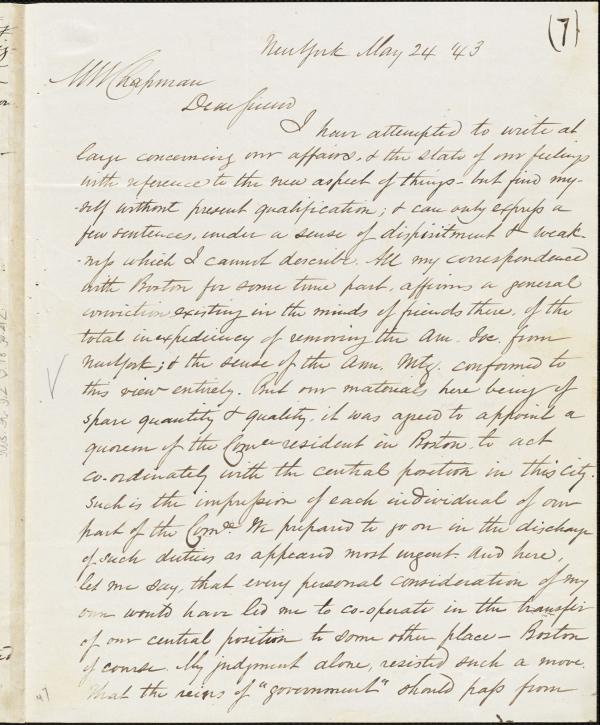 (7)
New York May 24 '43
M W Chapman
Dear friend
I have attempted to write at
large concerning our affairs, & the state of our feelings
with reference to the new aspect of things - but find my-
-self without present qualification; & can only express a
few sentences, under a sense of dispiritment & weak-
-ness which I cannot describe. All my correspondence
with Boston for some time past, affirms a general
conviction existing in the minds of friends there, of the
total inexpediency of removing the Am. Soc. from
New York; & the sense of the Ann. Mtg. conformed to
this view entirely. But our materials here being of
spare quantity & quality, it was agreed to appoint a
quorem of the Comee resident in Boston, to act
co-ordinately with the central position in this city.
Such is the impression of each individual of our
part of the Come. We prepared to go on in the discharge
of such duties as appeared most urgent. And here,
let me say, that every personal consideration of my
own would have led me to co-operate in the transfer
of our central position to some other place - Boston
of course. My judgment alone, resisted such a move.
That the reins of "government" should pass from